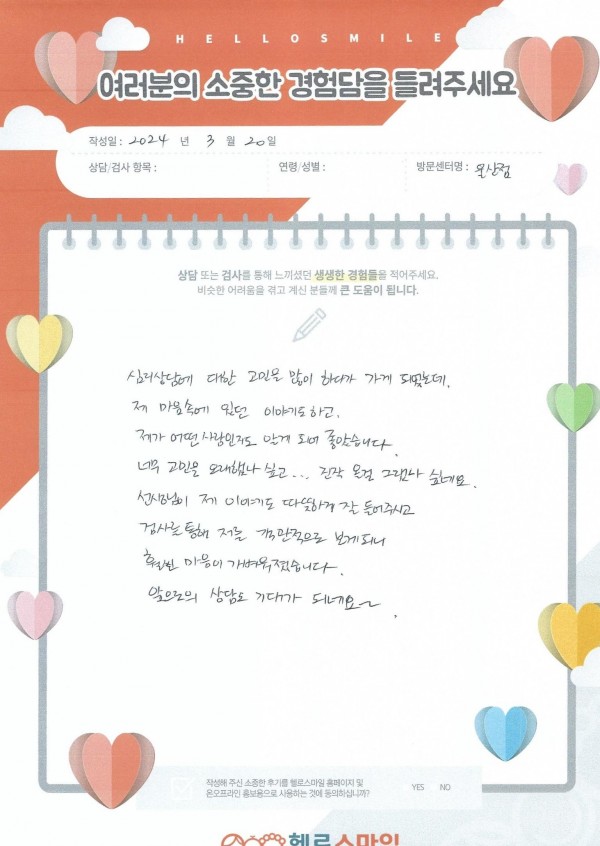 HELLOSMILE
여러분의 소중한 경험담을 들려주세요
작성일 : 2024 년 3 월 20 일
상담/검사 항목 : 연령/성별 : 방문센터명 : 일산점
상담 또는 검사를 통해 느끼셨던 생생한 경험들을 적어주세요.
비슷한 어려움을 겪고 계신 분들께 큰 도움이 됩니다.
심리상담에 대한 고민을 많이 하다가 가게 되었는데,
제 마음속에 있던 이야기도 하고,
제가 어떤 사람인지도 알게 되어 좋았습니다.
너무 고민을 오래했나 싶고... 진작 올걸 그랬나 싶네요.
선생님이 제 이야기도 따뜻하게 잘 들어주시고
검사를 통해 저를 객관적으로 보게되니
훨씬 마음이 가벼워졌습니다.
앞으로의 상담도 기대가 되네요~.
작성해 주신 소중한 후기를 헬로스마일 홈페이지 및
온오프라인 홍보용으로 사용하는 것에 동의하십니까? YES NO
헬로스마일